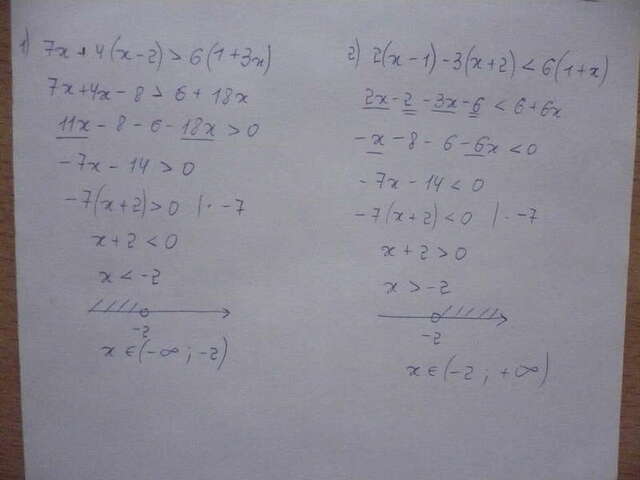 1) 7x + 4(x-2) > 6(1+3x)
7x+4x-8 > 6+18x
11x - 8 - 6 - 18x > 0
-7x - 14 > 0
-7(x+2) > 0 |· -7
x+2 < 0
x < -2
-2
x ∈ (-∞; -2)
2) 2(x-1) - 3(x+2) < 6(1+x)
2x-2-3x-6 < 6+6x
-x - 8 - 6 - 6x < 0
-7x - 14 < 0
-7(x+2) < 0 |· -7
x+2 > 0
x > -2
-2
x ∈ (-2; +∞)